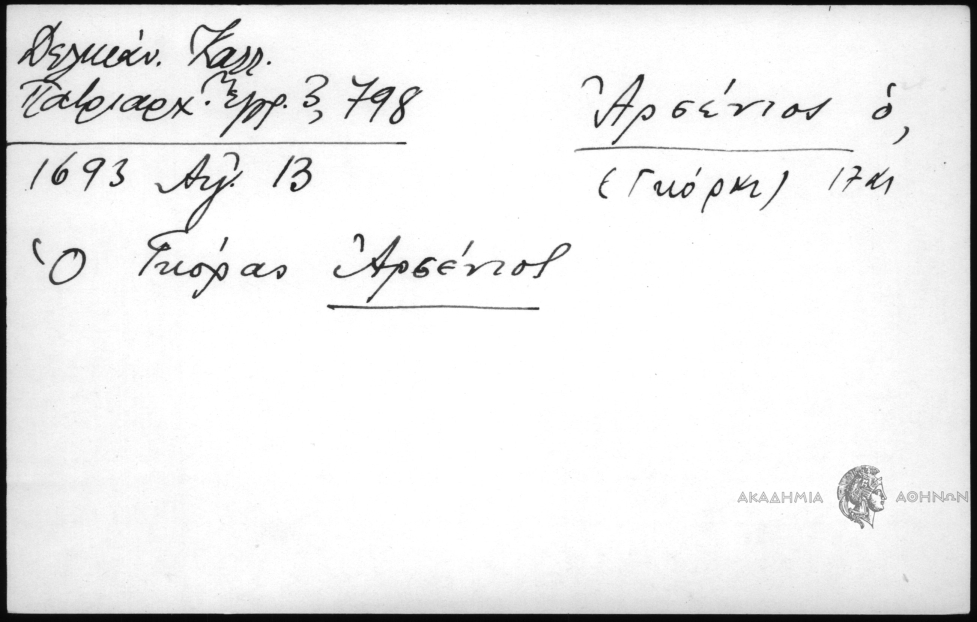 Δελικάν. Καλλ.
Πατριαρχ. Ἔγγρ. 3, 798
Ἀρσένιος ὁ,
(Γκιόρκι) 17 αι
1693 Αὐγ. 13
Ὁ Γκιόρας Ἀρσένιος
ΑΚΑΔΗΜΙΑ ΑΘΗΝΩΝ